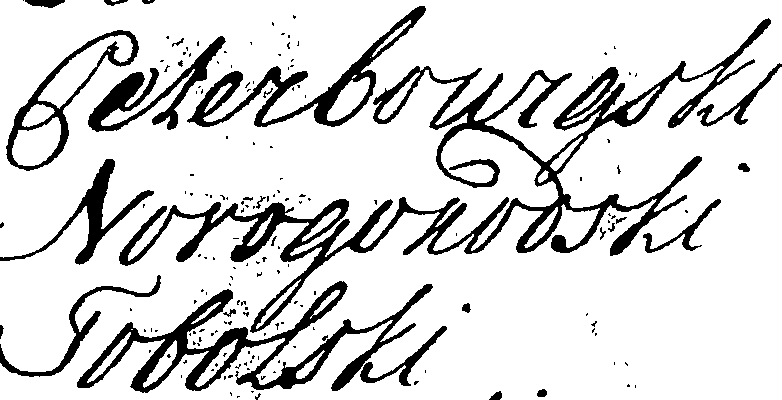 Peterbourgski
Novogorodski
Tobolski